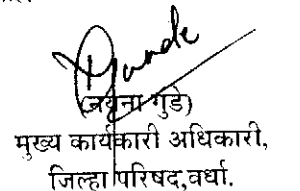 (नयना गुंडे)
मुख्य कार्यकारी अधिकारी,
जिल्हा परिषद,वर्धा.